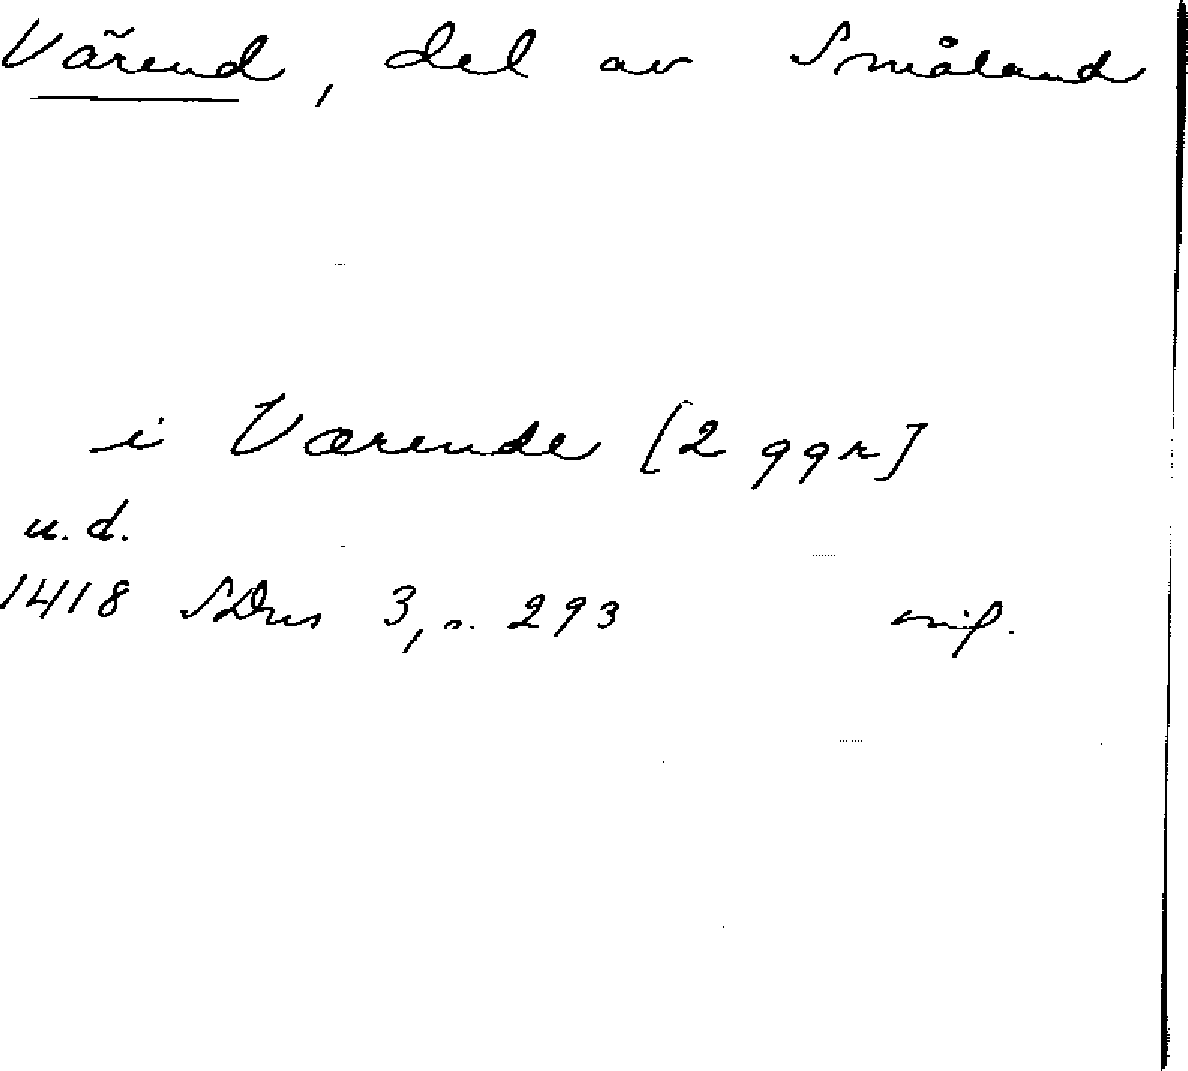 Värend, del av Småland
iVærende [2 ggr]
u.d.
1418 SDns 3, s. 293 orig.